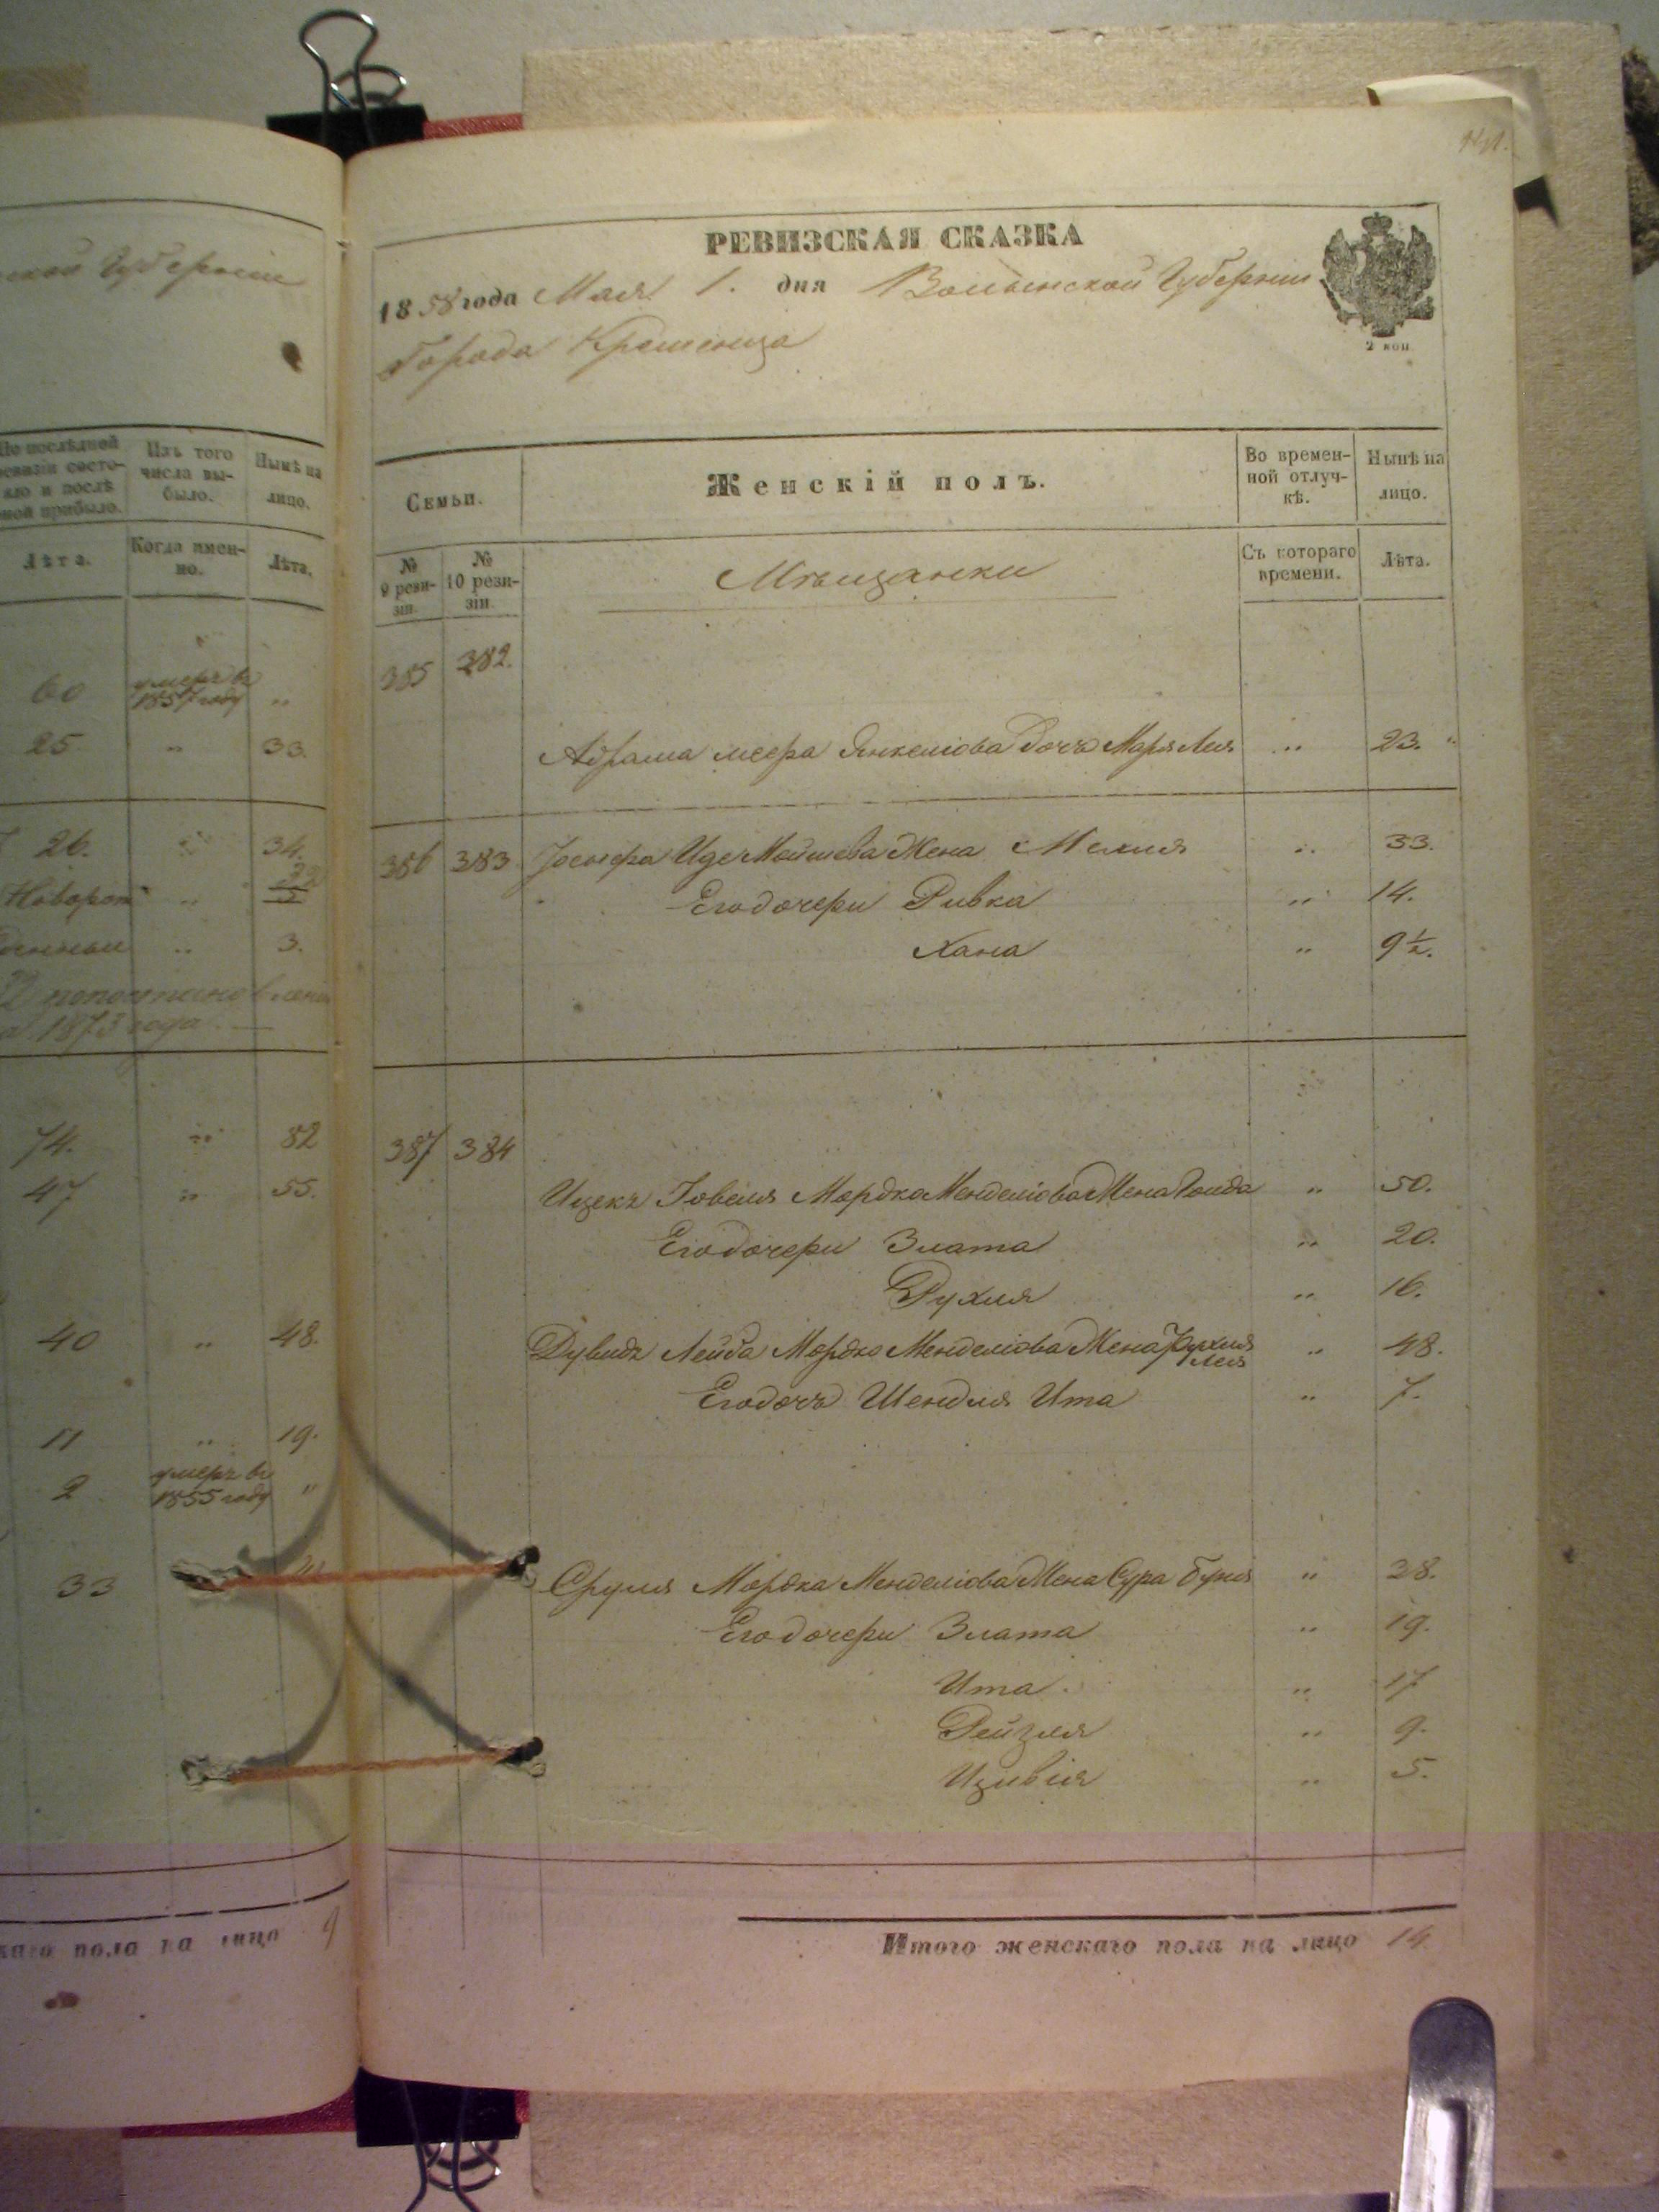 ской Губерніи
По послѣдней ревизіи состояло и послѣ оной прибыло.
Изъ того числа выбыло.
Нынѣ на лицо.
Лѣта.
Когда имен-
но.
Лѣта.
60 умеръ въ 1857 году „
25 „ 33.
26. „ 34.
Новорож „
денный „ 3.
1873 года.
74. „ 82
47 „ 55.
40 „ 48.
11 „ 19.
2 умеръ въ 1855 году „
33
каго пола на лицо 9
РЕВИЗСКАЯ СКАЗКА
1858 года Мая 1. дня Волынской Губерніи
Города Кременца
2 коп.
Семьи.
Женскій полъ.
Во времен-
ной отлуч-
кѣ.
Нынѣ на
лицо.
№
9 реви-
зіи.
№
10 реви-
зіи.
Мѣщанки
Съ котораго
времени.
Лѣта.
385 382.
Абрама Меера Янкеліова дочь Маря Лея „ 23.
386 383 Іосифа Иде Мойшева Жена Малия „ 33.
Его дочери Ривка „ 14.
Хана „ 9½.
387 384
Ицекъ Іовеля Мордка Менделіова Жена Голда „ 50.
Его дочери Злата „ 20.
Рухля „ 16.
Дувидъ Лейба Мордко Менделіова Жена Рухля Лея „ 48.
Его дочь Шендля Ита „ 7.
Сруля Мордка Менделіова Жена Сура Буня „ 38.
Его дочери Злата „ 19.
Ита „ 17
Рейзля „ 9.
Цивія „ 5.
Итого женскаго пола на лицо 14